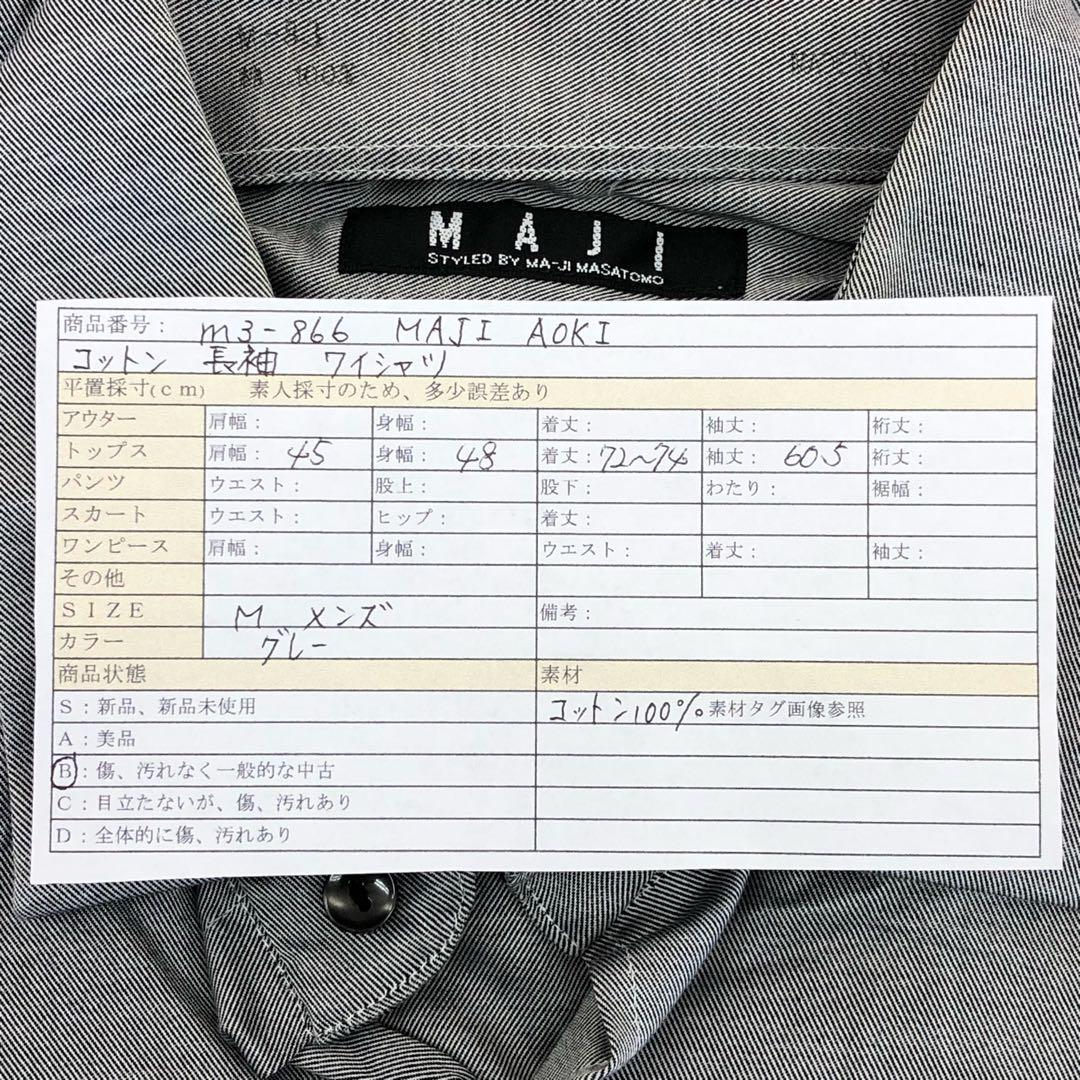 MAJI
STYLED BY MA-JI MASATOMO
商品番号： m3-866 MAJI AOKI
コットン 長袖 ワイシャツ
平置採寸(ｃｍ) 素人採寸のため、多少誤差あり
アウター 肩幅： 身幅： 着丈： 袖丈： 裄丈：
トップス 肩幅： 45 身幅： 48 着丈：72～74 袖丈： 60.5 裄丈：
パンツ ウエスト： 股上： 股下： わたり： 裾幅：
スカート ウエスト： ヒップ： 着丈：
ワンピース 肩幅： 身幅： ウエスト： 着丈： 袖丈：
その他
ＳＩＺＥ M メンズ 備考：
カラー グレー
商品状態 素材
Ｓ：新品、新品未使用 コットン100%。素材タグ画像参照
Ａ：美品
Ｂ：傷、汚れなく一般的な中古
Ｃ：目立たないが、傷、汚れあり
Ｄ：全体的に傷、汚れあり